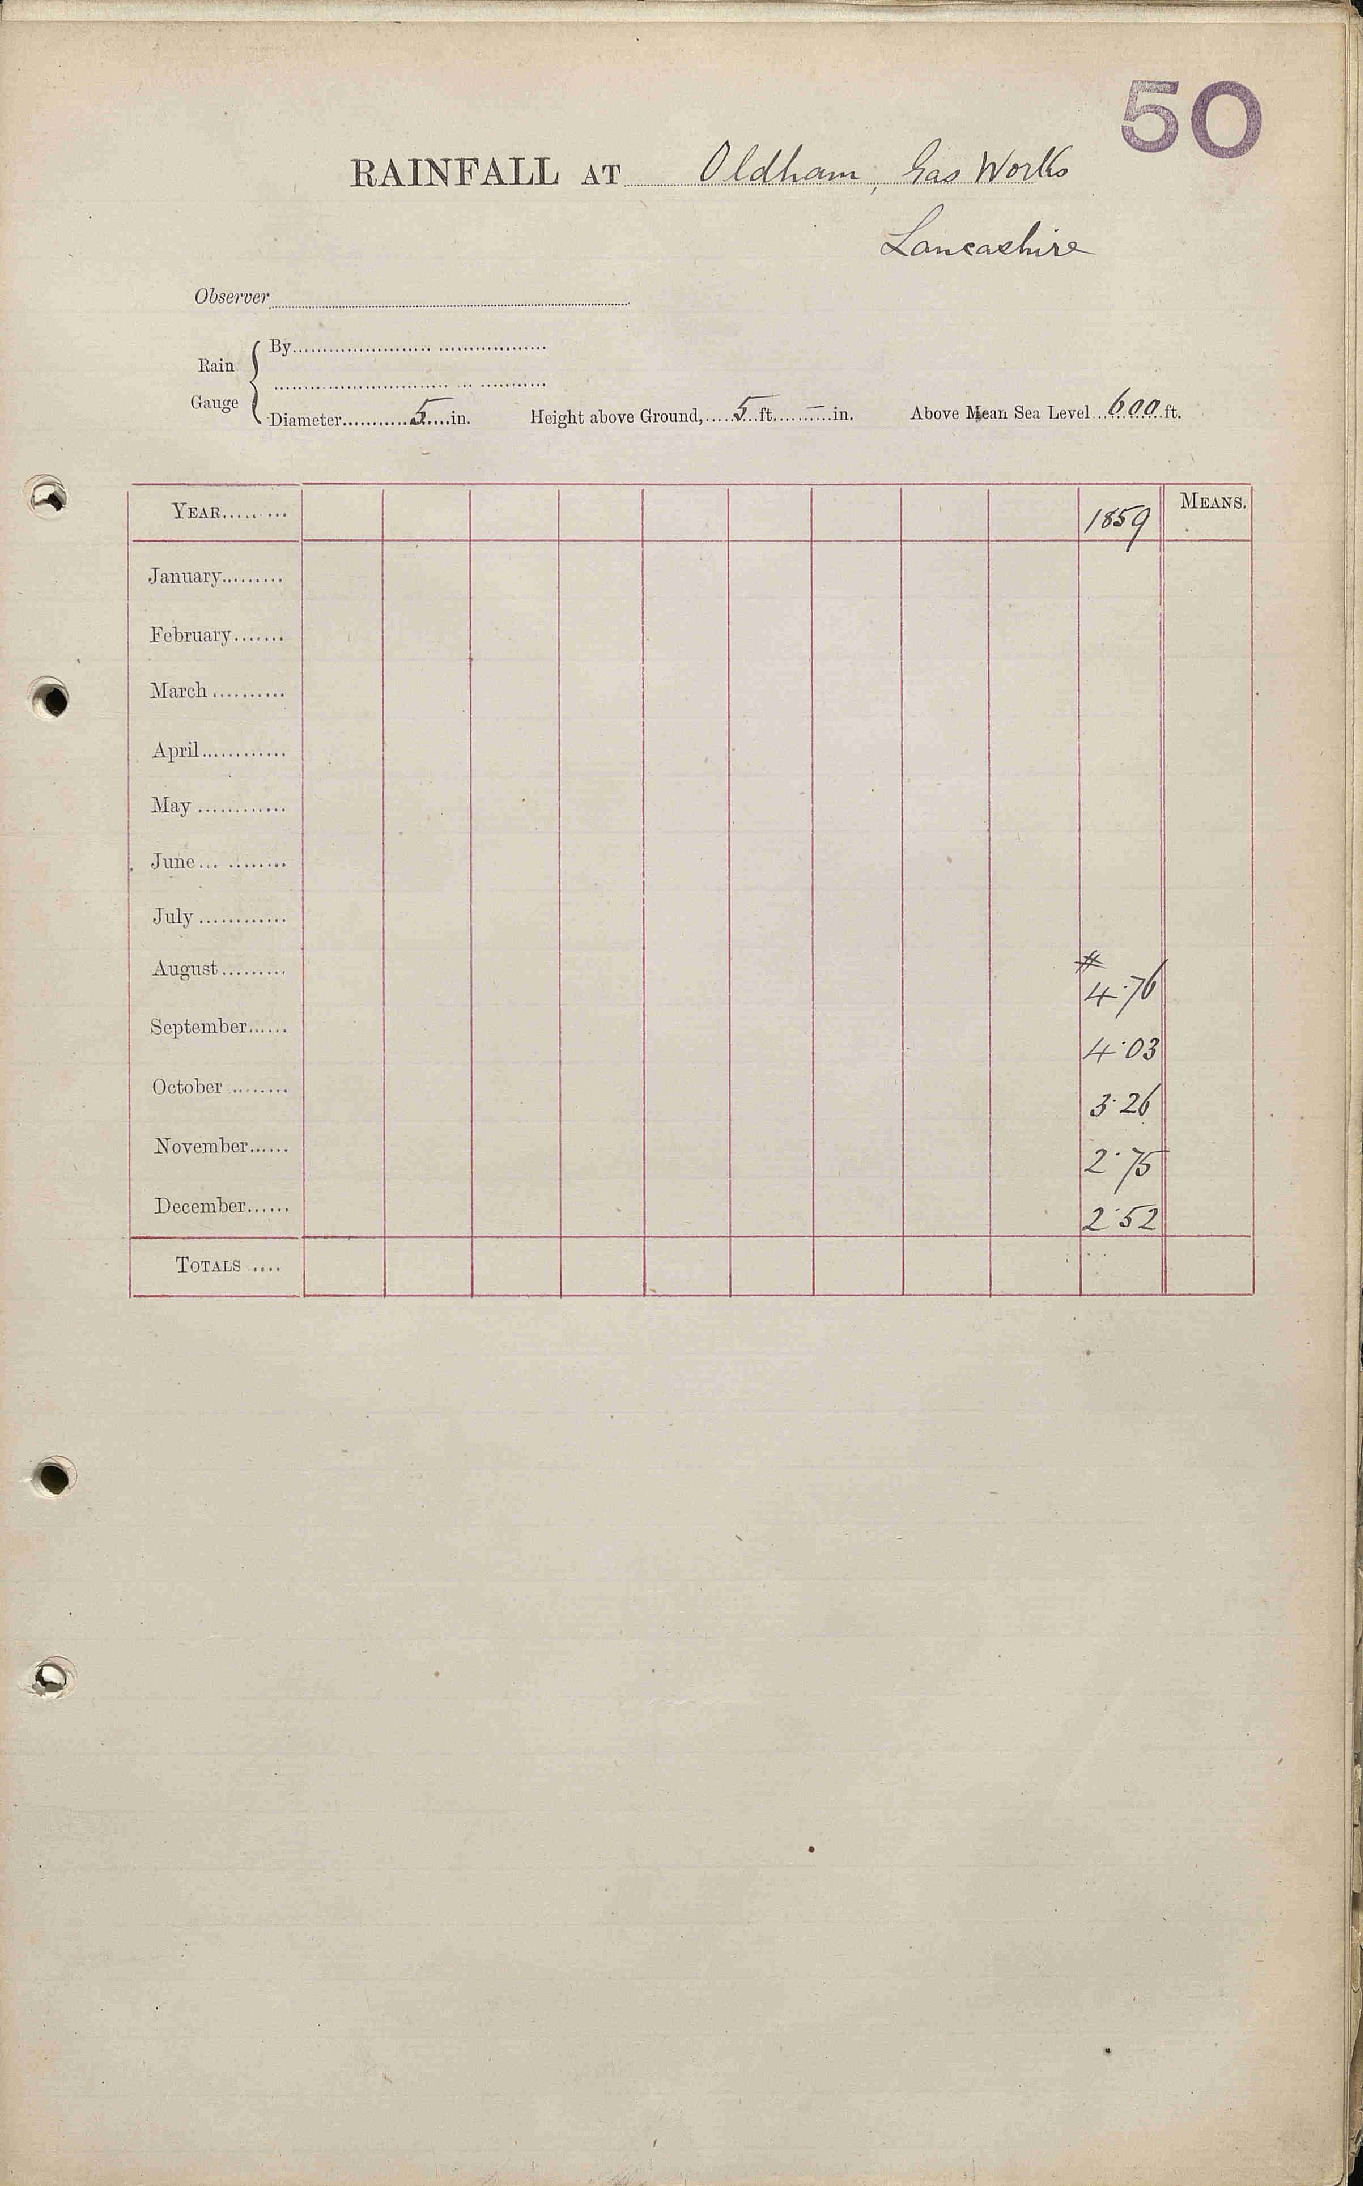 50
RAINFALL AT Oldham, Gas Works
Lancashire
Observer
Rain Gauge
By
Diameter 5 in. Height above Ground, 5 ft. – in. Above Mean Sea Level 600 ft.
YEAR 1859 MEANS.
January
February
March
April
May
June
July
August # 4.76
September 4.03
October 3.26
November 2.75
December 2.52
TOTALS